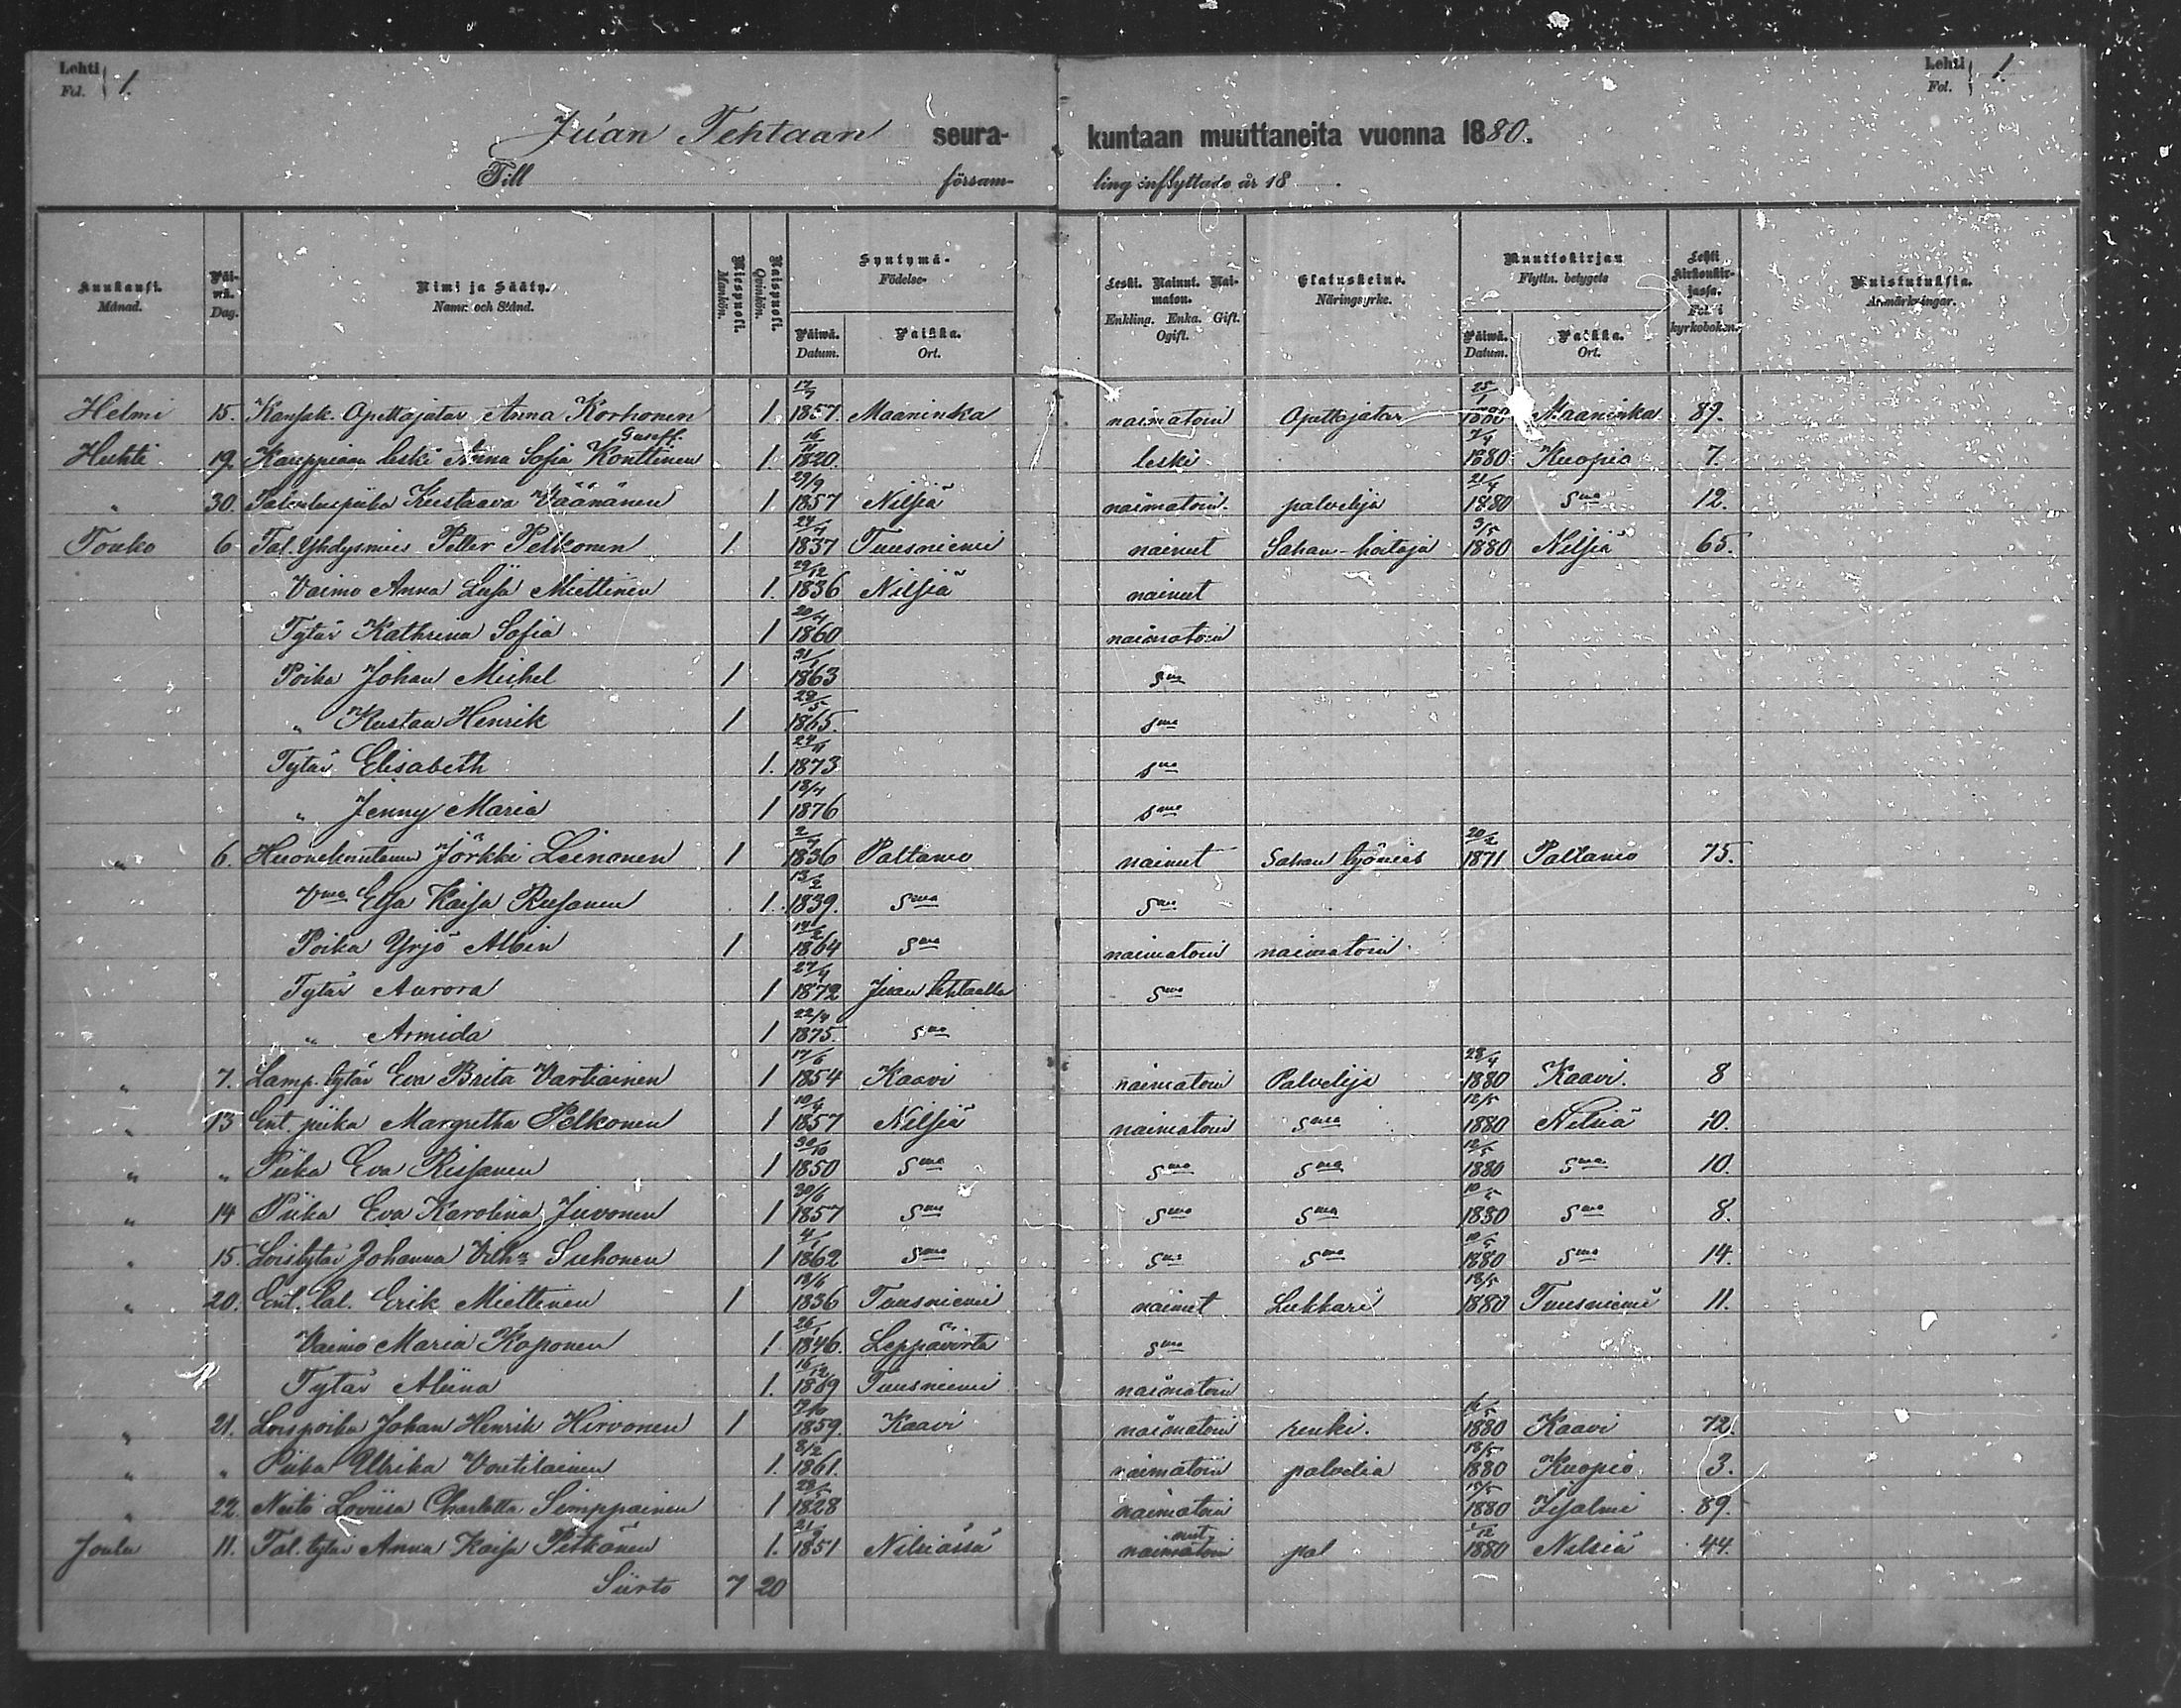 Lehti Fol. } 1. Lehti Fol. } 1.
Juan Tehtaan seura- kuntaan muuttaneita vuonna 1880.
Till försam- ling inflyttade år 18 .
Kuukausi. Månad. Päi-wä. Dag. Nimi ja Sääty. Namn och Stånd. Miespuoli. Mankön. Naispuoli. Qvinkön. Syntymä- Födelse- Päiwä. Datum. Paikka. Ort. Leski. Nainut. Nai-maton. Enkling. Enka. Gift. Ogift. Elatuskeino. Näringsyrke. Muuttokirjan Flyttn. betygets Päiwä. Datum. Paikka. Ort. Lehti kirkonkir-jassa. Fol. i kyrkoboken. Muistutuksia. Anmärkningar.
Helmi 15. Kansak. Opettajatar Anna Korhonen 1. 17/7 1857. Maaninka naimatoin Opettajatar 25/1 1880 Maaninka 89.
Huhti 19. Kauppiaan leski Anna Sofia Konttinen 1. 16/11 1820. leski 7/4 1880 Kuopio 7.
" 30. Palveluspiika Kustaava Väänänen 1. 29/9 1857 Nilsiä naimatoin. palvelija 21/4 1880 Sma 12.
Touko 6 Tal. Yhdysmies Petter Pelkonen 1. 24/7 1837 Tuusniemi nainut Sahan-hoitaja 3/5 1880 Nilsiä 65.
Vaimo Anna Liisa Miettinen 1. 29/12 1836 Nilsiä nainut
Tytär Kathrina Sofia 1 20/4 1860 naimatoin
Poika Johan Michel 1 31/1 1863 Sma
" Kustaa Henrik 1 28/5 1865. Sma
Tytär Elisabeth 1. 24/11 1873 Sma
" Jenny Maria 1 18/4 1876 Sma
" 6. Huonekuntamies Jörkki Leinonen 1 2/7 1836 Paltamo nainut Sahan työmies 20/2 1871 Paltamo 75.
Vmo Elsa Kaisa Rusanen 1. 13/2 1839. Sma Sma
Poika Yrjö Albin 1 14/2 1864 Sma naimatoin naimatoin
Tytär Aurora 1 27/4 1872 Juan tehtaalla Sma
" Armida 1 22/4 1875. Sma
" 7. Lamp. tytär Eva Brita Vartiainen 1 17/6 1854 Kaavi naimatoin Palvelija 28/4 1880 Kaavi. 8
" 13 Ent. piika Margretha Pelkonen 1 10/4 1857 Nilsiä naimatoin Sma 12/5 1880 Nilsiä 10.
" " Piika Eva Rissanen 1 30/10 1850 Sma Sma Sma 12/5 1880 Sma 10.
" 14 Piika Eva Karolina Juvonen 1 30/6 1857 Sma Sma Sma 10/5 1880 Sma 8.
" 15. Loistytär Johanna Vilh:a Suhonen 1 4/1 1862 Sma Sma Sma 10/5 1880 Sma 14.
" 20. Ent. tal. Erik Miettinen 1 18/6 1836 Tuusniemi nainut Lukkari 18/5 1880 Tuusniemi 11.
Vaimo Maria Koponen 1 26/1 1846. Leppävirta Sma
Tytär Aliina 1. 16/12 1869 Tuusniemi naimatoin
" 21. Loispoika Johan Henrik Hirvonen 1 17/10 1859. Kaavi naimatoin renki. 16/5 1880 Kaavi 72.
" " Piika Ulrika Voutilainen 1. 8/2 1861. naimatoin palvelia 18/5 1880 Kuopio 3.
" 22. Neito Lovisa Charlotta Simppainen 1 28/5 1828 naimatoin 15/5 1880 Iisalmi 89.
Joulu 11. Tal. tytär Anna Kaisa Pitkänen 1. 21/9 1851 Nilsiässä naimatoin nut pal 1/12 1880 Nilsiä 44.
Siirto 7 20